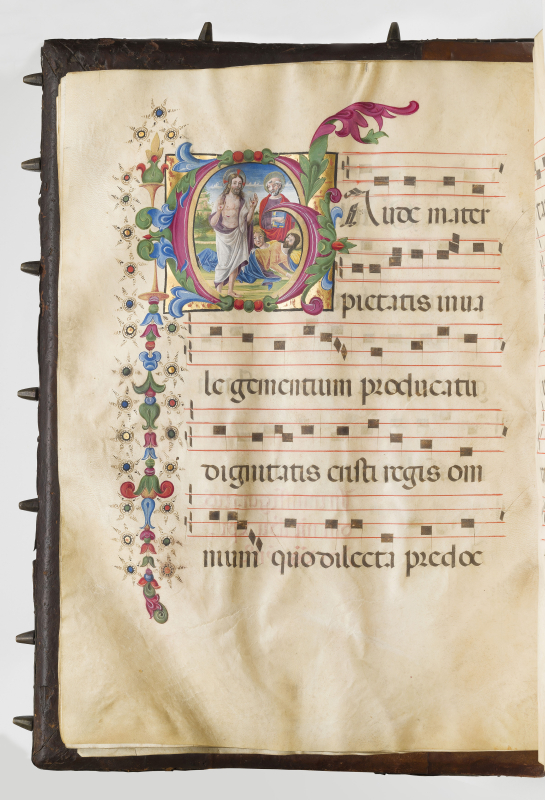 GAude mater
pietatis inua
le gementium producatu
dignitatis cristi regis om
nium quo dilecta predoc